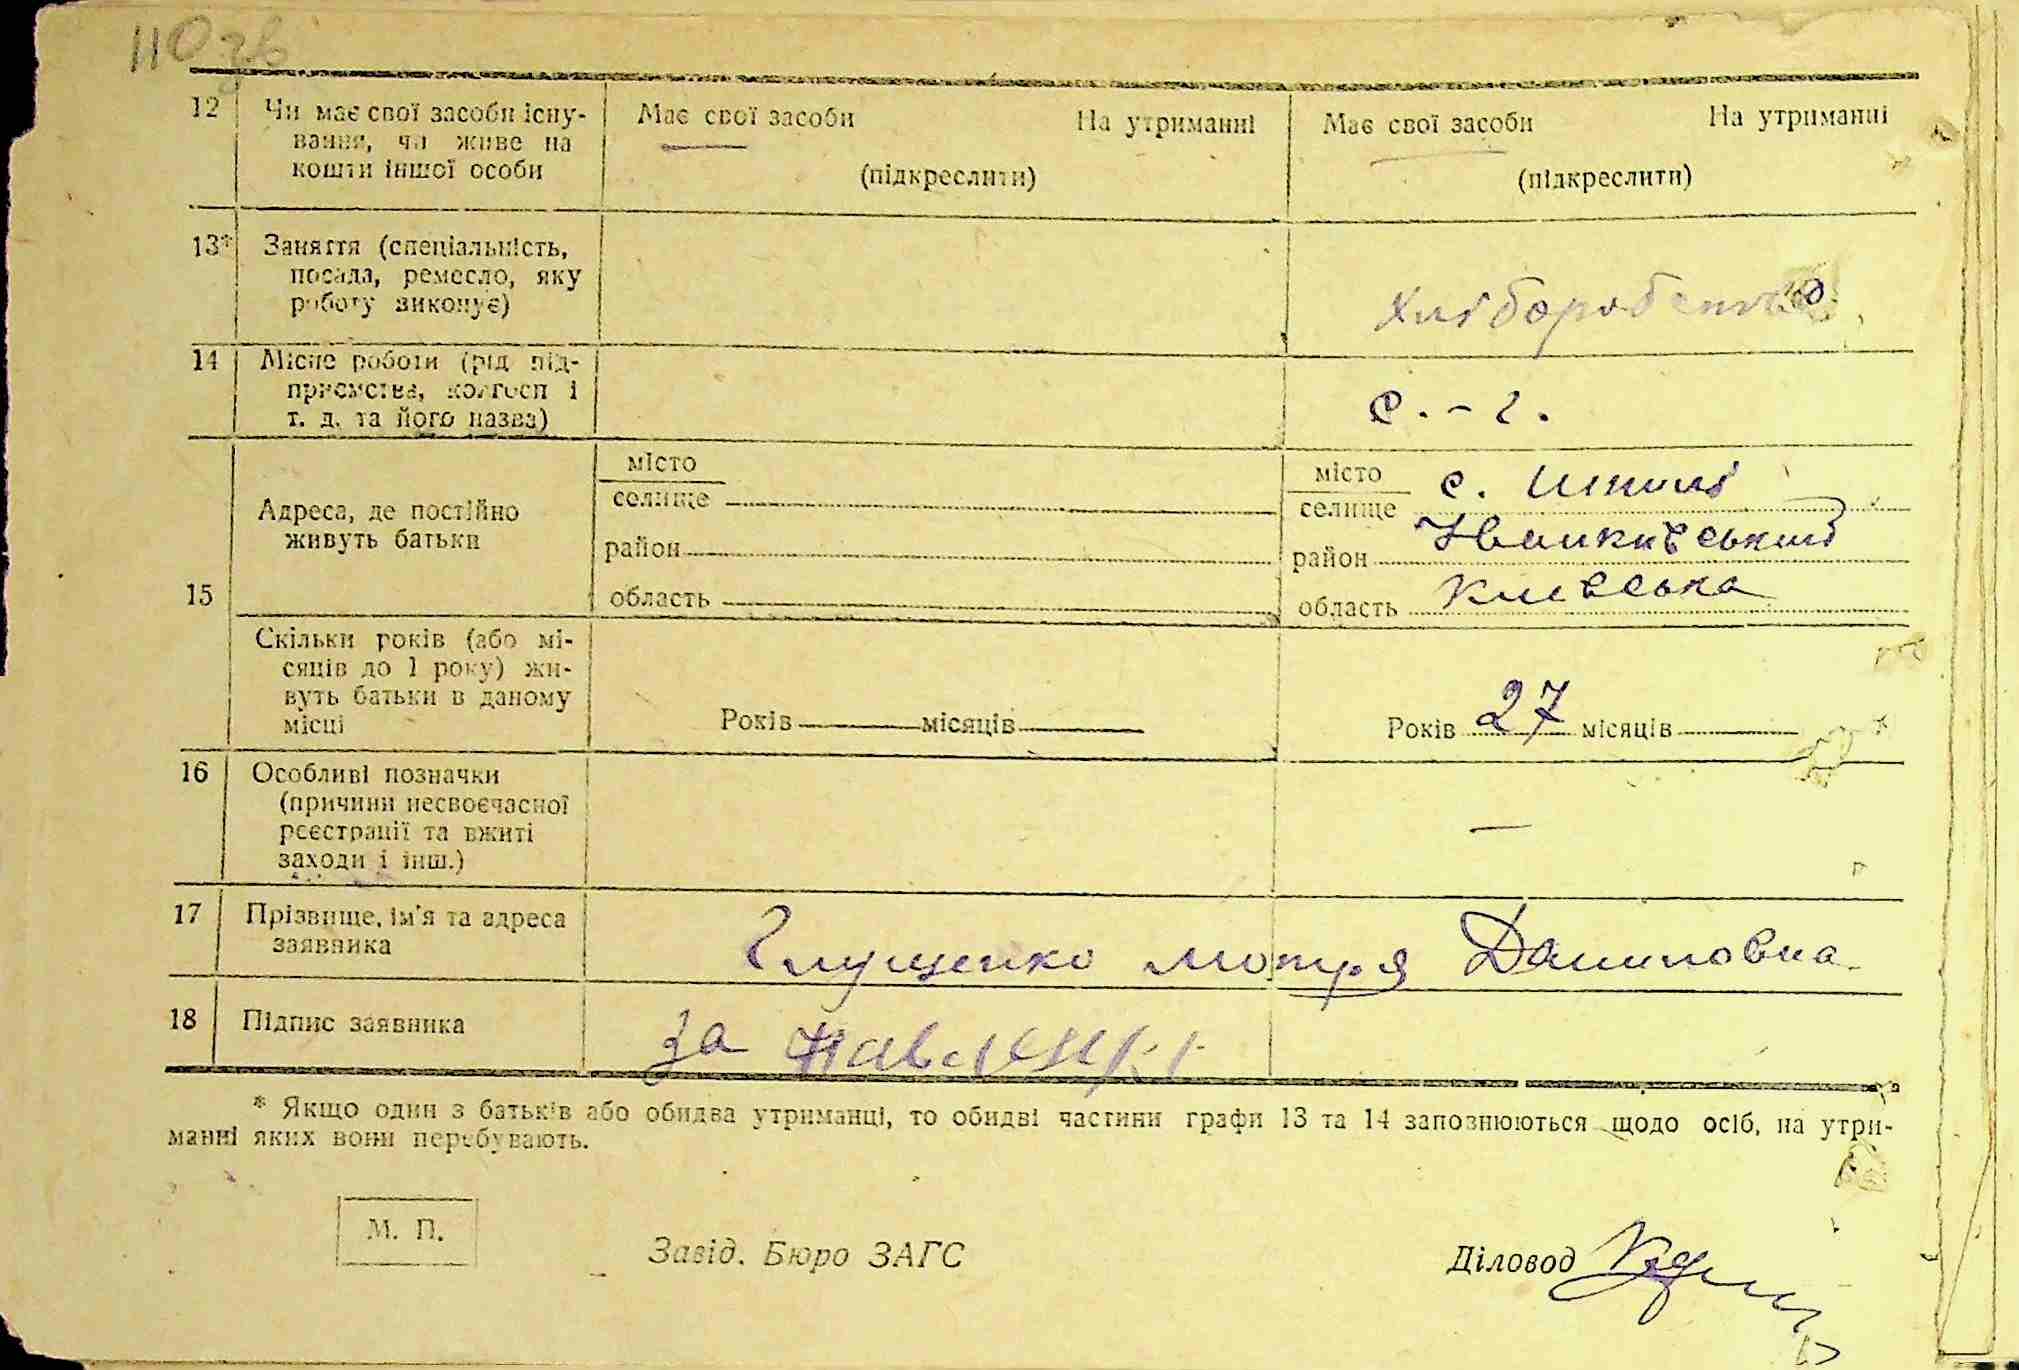 110 зв
12 Чи має свої засоби існу- Має свої засоби На утриманні Має свої засоби На утриманні
вання, чи живе на
кошти іншої особи (підкреслити) (підкреслити)
13* Заняття (спеціальність,
посада, ремесло, яку
роботу виконує)
14 Місце роботи (рід під-
приємства, колгосп і
т. д. та його назва) с.-г.
15 Адреса, де постійно
живуть батьки
місто
селище
район
область
місто с. Шпилі
селище
район Іванківський
область Київська
Скільки років (або мі-
сяців до 1 року) жи-
вуть батьки в даному
місці
Років місяців Років 27 місяців
16 Особливі позначки
(причини несвоєчасної
реєстрації та вжиті
заходи і інш.) —
17 Прізвище, ім'я та адреса
заявника
Глущенко Мотря Даниловна
18 Підпис заявника за
* Якщо один з батьків або обидва утриманці, то обидві частини графи 13 та 14 заповнюються щодо осіб, на утри-
манні яких вони перебувають.
М. П.
Завід. Бюро ЗАГС
Діловод